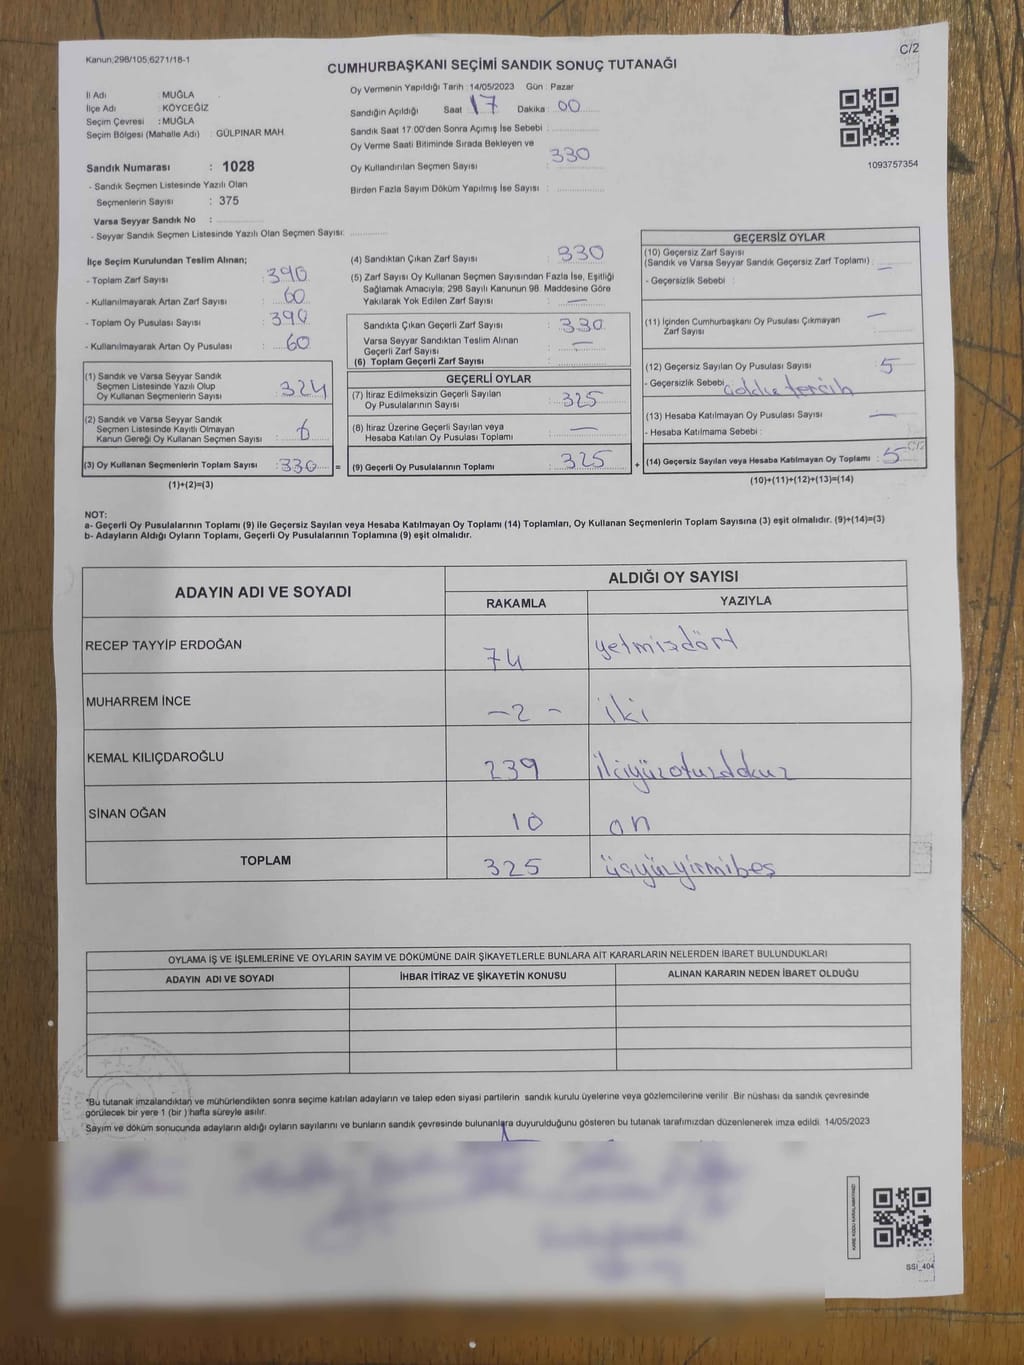 Kanun;298/105,6271/18-1
C/2
CUMHURBAŞKANI SEÇİMİ SANDIK SONUÇ TUTANAĞI
İl Adı : MUĞLA
İlçe Adı : KÖYCEĞİZ
Seçim Çevresi : MUĞLA
Seçim Bölgesi (Mahalle Adı) : GÜLPINAR MAH
Sandık Numarası : 1028
- Sandık Seçmen Listesinde Yazılı Olan
Seçmenlerin Sayısı : 375
Varsa Seyyar Sandık No :
- Seyyar Sandık Seçmen Listesinde Yazılı Olan Seçmen Sayısı:
Oy Vermenin Yapıldığı Tarih : 14/05/2023 Gün : Pazar
Sandığın Açıldığı Saat 17 Dakika : 00
Sandık Saat 17:00'den Sonra Açımış İse Sebebi :
Oy Verme Saati Bitiminde Sırada Bekleyen ve
Oy Kullandırılan Seçmen Sayısı : 330
Birden Fazla Sayım Döküm Yapılmış İse Sayısı :
1093757354
İlçe Seçim Kurulundan Teslim Alınan;
- Toplam Zarf Sayısı : 390
- Kullanılmayarak Artan Zarf Sayısı : 60
- Toplam Oy Pusulası Sayısı : 390
- Kullanılmayarak Artan Oy Pusulası : 60
(1) Sandık ve Varsa Seyyar Sandık
Seçmen Listesinde Yazılı Olup
Oy Kullanan Seçmenlerin Sayısı : 324
(2) Sandık ve Varsa Seyyar Sandık
Seçmen Listesinde Kayıtlı Olmayan
Kanun Gereği Oy Kullanan Seçmen Sayısı : 6
(3) Oy Kullanan Seçmenlerin Toplam Sayısı : 330 =
(1)+(2)=(3)
(4) Sandıktan Çıkan Zarf Sayısı : 330
(5) Zarf Sayısı Oy Kullanan Seçmen Sayısından Fazla İse, Eşitliği
Sağlamak Amacıyla; 298 Sayılı Kanunun 98. Maddesine Göre
Yakılarak Yok Edilen Zarf Sayısı : —
Sandıkta Çıkan Geçerli Zarf Sayısı : 330
Varsa Seyyar Sandıktan Teslim Alınan
Geçerli Zarf Sayısı : —
(6) Toplam Geçerli Zarf Sayısı :
GEÇERLİ OYLAR
(7) İtiraz Edilmeksizin Geçerli Sayılan
Oy Pusulalarının Sayısı : 325
(8) İtiraz Üzerine Geçerli Sayılan veya
Hesaba Katılan Oy Pusulası Toplamı : —
(9) Geçerli Oy Pusulalarının Toplamı : 325 +
GEÇERSİZ OYLAR
(10) Geçersiz Zarf Sayısı
(Sandık ve Varsa Seyyar Sandık Geçersiz Zarf Toplamı) : —
- Geçersizlik Sebebi :
(11) İçinden Cumhurbaşkanı Oy Pusulası Çıkmayan
Zarf Sayısı : —
(12) Geçersiz Sayılan Oy Pusulası Sayısı : 5
- Geçersizlik Sebebi tercih
(13) Hesaba Katılmayan Oy Pusulası Sayısı : —
- Hesaba Katılmama Sebebi :
(14) Geçersiz Sayılan veya Hesaba Katılmayan Oy Toplamı : 5 C/2
(10)+(11)+(12)+(13)=(14)
NOT:
a- Geçerli Oy Pusulalarının Toplamı (9) ile Geçersiz Sayılan veya Hesaba Katılmayan Oy Toplamı (14) Toplamları, Oy Kullanan Seçmenlerin Toplam Sayısına (3) eşit olmalıdır. (9)+(14)=(3)
b- Adayların Aldığı Oyların Toplamı, Geçerli Oy Pusulalarının Toplamına (9) eşit olmalıdır.
ADAYIN ADI VE SOYADI
ALDIĞI OY SAYISI
RAKAMLA YAZIYLA
RECEP TAYYİP ERDOĞAN 74 yetmişdört
MUHARREM İNCE -2- iki
KEMAL KILIÇDAROĞLU 239 ikiyüzotuzdokuz
SİNAN OĞAN 10 on
TOPLAM 325 üçyüzyirmibeş
OYLAMA İŞ VE İŞLEMLERİNE VE OYLARIN SAYIM VE DÖKÜMÜNE DAİR ŞİKAYETLERLE BUNLARA AİT KARARLARIN NELERDEN İBARET BULUNDUKLARI
ADAYIN ADI VE SOYADI İHBAR İTİRAZ VE ŞİKAYETİN KONUSU ALINAN KARARIN NEDEN İBARET OLDUĞU
*Bu tutanak imzalandıktan ve mühürlendikten sonra seçime katılan adayların ve talep eden siyasi partilerin sandık kurulu üyelerine veya gözlemcilerine verilir. Bir nüshası da sandık çevresinde
görülecek bir yere 1 (bir ) hafta süreyle asılır.
Sayım ve döküm sonucunda adayların aldığı oyların sayılarını ve bunların sandık çevresinde bulunanlara duyurulduğunu gösteren bu tutanak tarafımızdan düzenlenerek imza edildi. 14/05/2023
KARE KODU KARALAMAYINIZ!
SSI_404